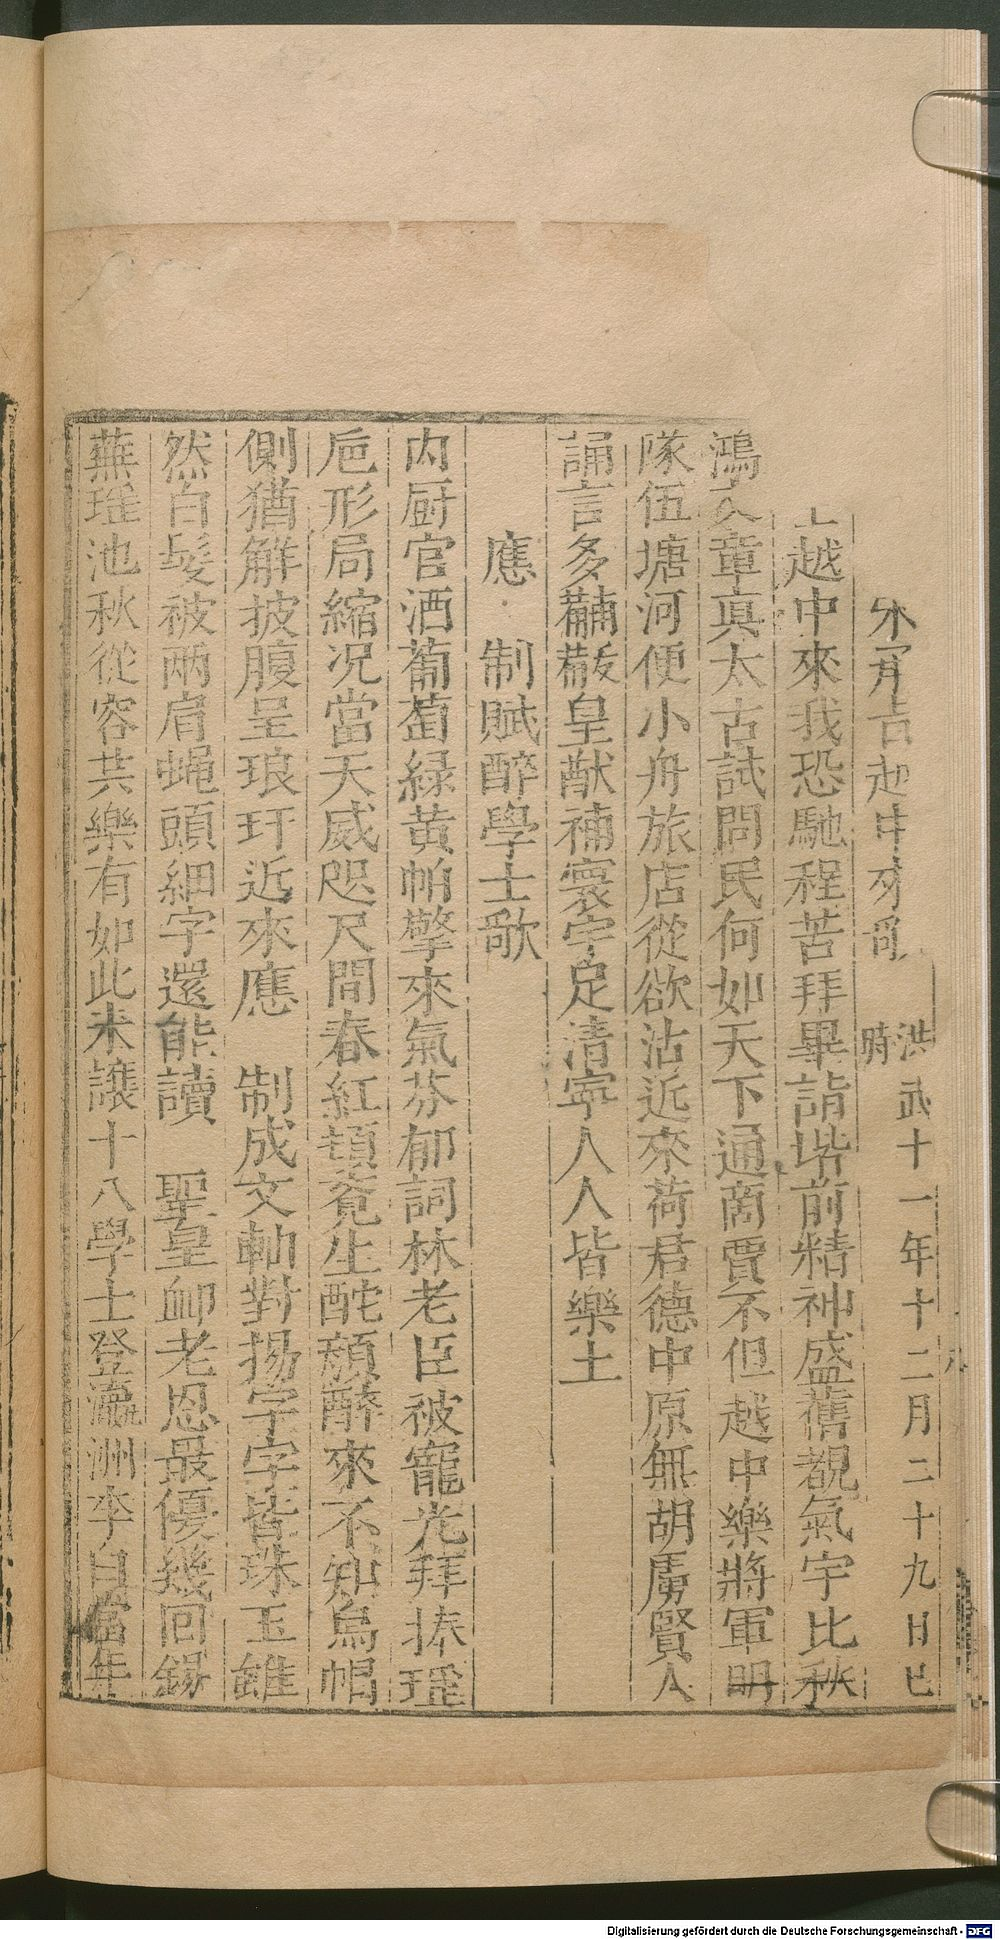 洪武十一年十二月二十九日巳
時
越中來我恐馳程苦拜畢詣堦前精神盛舊覩氣宇比秋
鴻文章真太古試問民何如天下通商賈不但越中樂將軍明
隊伍塘河便小舟旅店從欲沽近來荷君德中原無胡虜賢人
誦言多黼黻皇猷補寰宇足清寧人人皆樂土
應 制賦醉學士歌
内厨官酒葡萄綠黄帕擎來氣芬郁詞林老臣被寵光拜捧瑶
巵形局縮况當天威咫尺間春紅頓覺生酡顔醉來不知烏帽
側猶解披腹呈琅玕近來應 制成文軸對揚字字皆珠玉雖
然白髮被兩肩蝇頭細字還能讀 聖皇䘏老恩最優幾回錫
蕪瑶池秋從容共樂有如此未讓十八學士登瀛洲李白當年
Digitalisierung gefördert durch die Deutsche Forschungsgemeinschaft - DFG